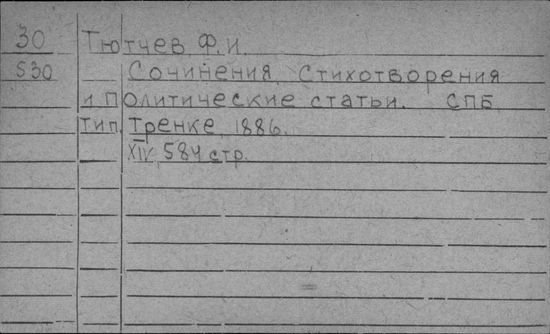 30 Тютчев Ф.И.
530 Сочинения. Стихотворения
и политические статьи. СПБ,
тип. Тренке, 1886.
XIV, 584 стр.